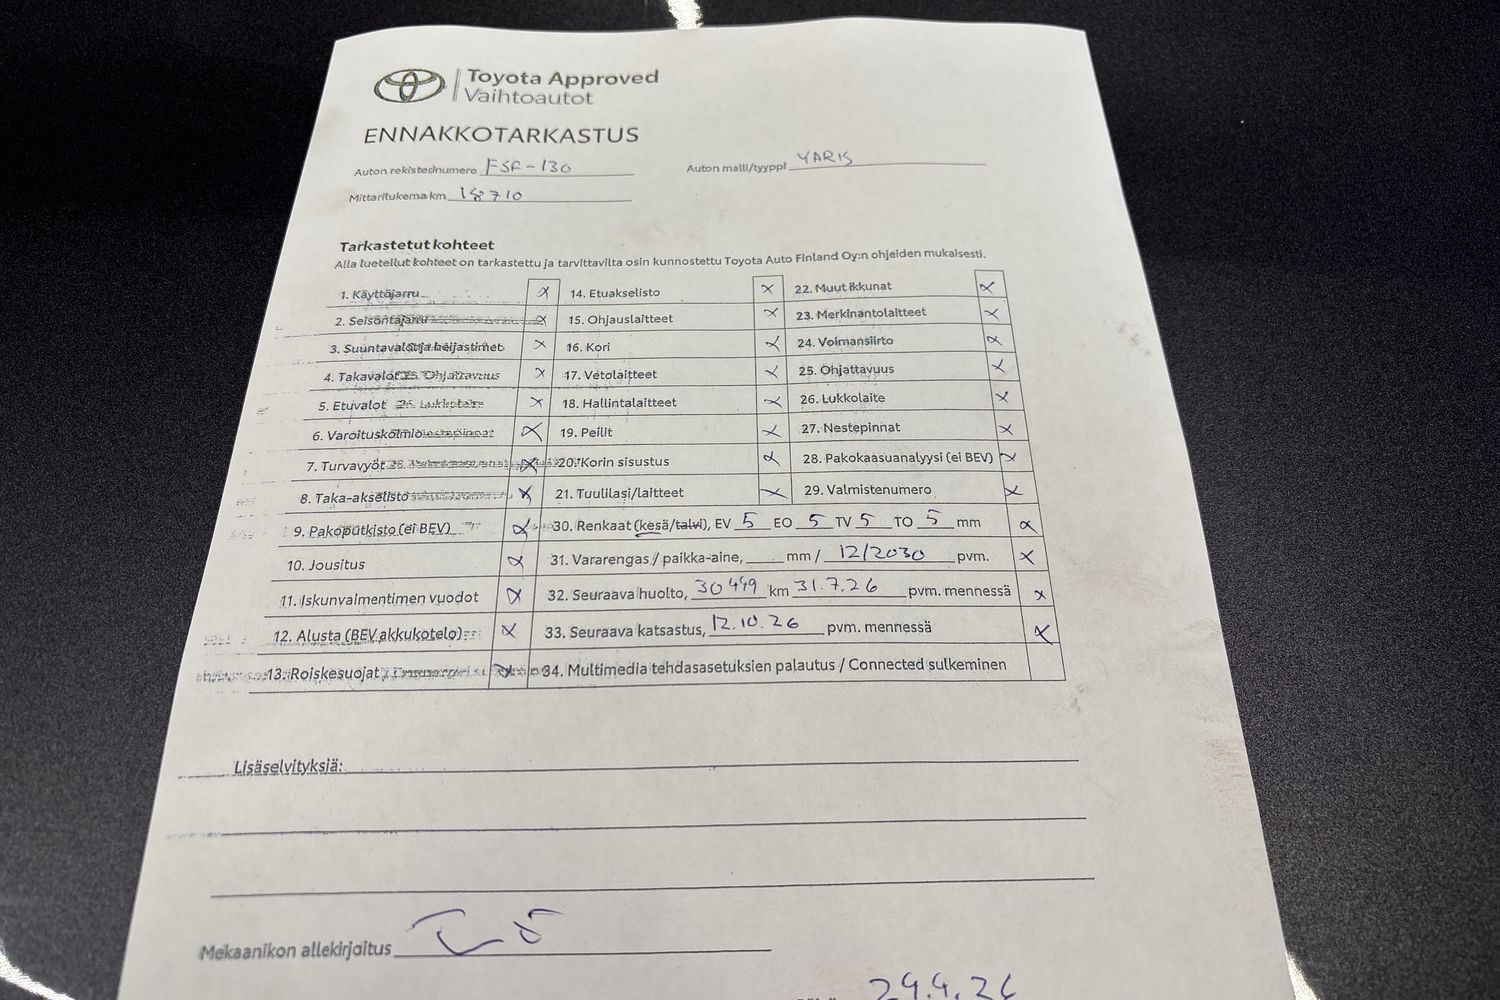 Toyota Approved
Vaihtoautot
ENNAKKOTARKASTUS
Auton rekisterinumero FSF-130 Auton malli/tyyppi YARIS
Mittarilukema km 18710
Tarkastetut kohteet
Alla luetellut kohteet on tarkastettu ja tarvittavilta osin kunnostettu Toyota Auto Finland Oy:n ohjeiden mukaisesti.
1. Käyttöjarru x 14. Etuakselisto x 22. Muut ikkunat x
2. Seisontajarru x 15. Ohjauslaitteet x 23. Merkinantolaitteet x
3. Suuntavalot ja heijastimet x 16. Kori x 24. Voimansiirto x
4. Takavalot x 17. Vetolaitteet x 25. Ohjattavuus x
5. Etuvalot x 18. Hallintalaitteet x 26. Lukkolaite x
6. Varoituskolmio x 19. Peilit x 27. Nestepinnat x
7. Turvavyöt x 20. Korin sisustus x 28. Pakokaasuanalyysi (ei BEV) x
8. Taka-akselisto x 21. Tuulilasi/laitteet x 29. Valmistenumero x
9. Pakoputkisto (ei BEV) x 30. Renkaat (kesä/talvi), EV 5 EO 5 TV 5 TO 5 mm x
10. Jousitus x 31. Vararengas / paikka-aine, mm / 12/2030 pvm. x
11. Iskunvaimentimen vuodot x 32. Seuraava huolto, 30499 km 31.7.26 pvm. mennessä x
12. Alusta (BEV akkukotelo) x 33. Seuraava katsastus, 12.10.26 pvm. mennessä x
13. Roiskesuojat x 34. Multimedia tehdasasetuksien palautus / Connected sulkeminen
Lisäselvityksiä:
Mekaanikon allekirjoitus
29.4.26